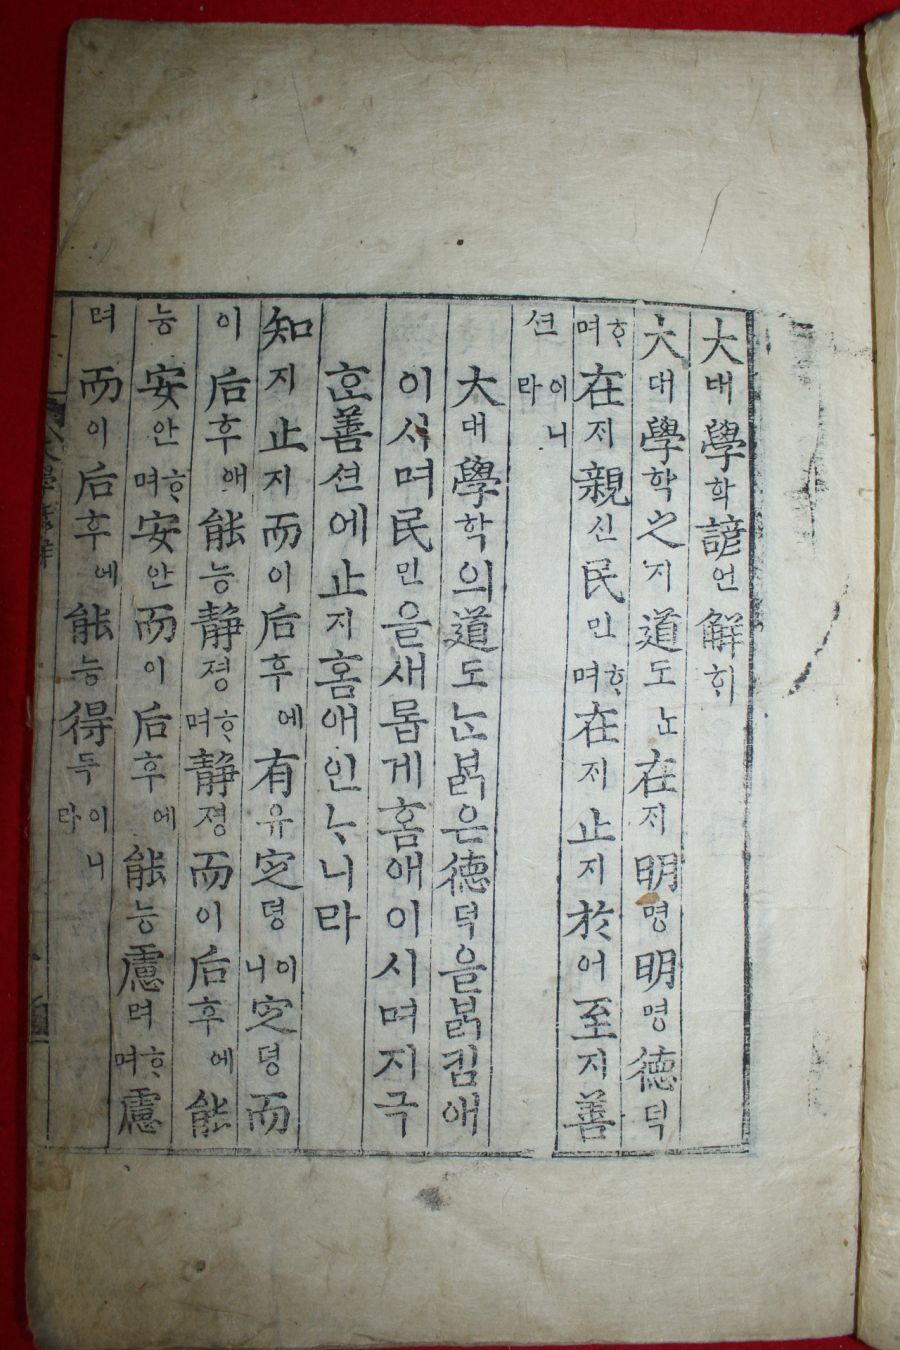 大대學학諺언解ᄒᆡ
大대學학之지道도ᄂᆞᆫ在ᄌᆡ明명明명德덕
ᄒᆞ며在ᄌᆡ親신民민ᄒᆞ며在ᄌᆡ止지於어至지善
션이니라
大대學학의道도ᄂᆞᆫᄇᆞᆰ은德덕을ᄇᆞᆰ킴애
이시며民민을새롭게홈애이시며지극
ᄒᆞᆫ善션에止지홈애인ᄂᆞ니라
知지止지而이后후에有유定뎡이니定뎡而
이后후애能능靜졍ᄒᆞ며靜졍而이后후에能
능安안ᄒᆞ며安안而이后후에能능慮려ᄒᆞ며慮
려而이后후에能능得득이니라
大學諺解